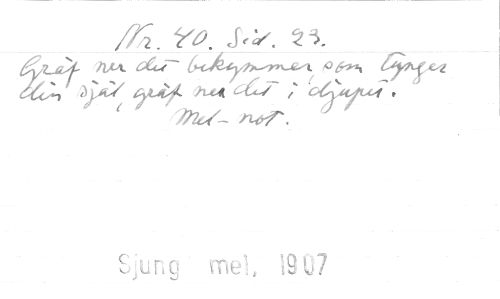 Nr. 40. Sid. 23.
Gräf ner det bekymmer, som tynger
din själ, gräf ner det i djupet.
Mel-not.
Sjung mel, 1907